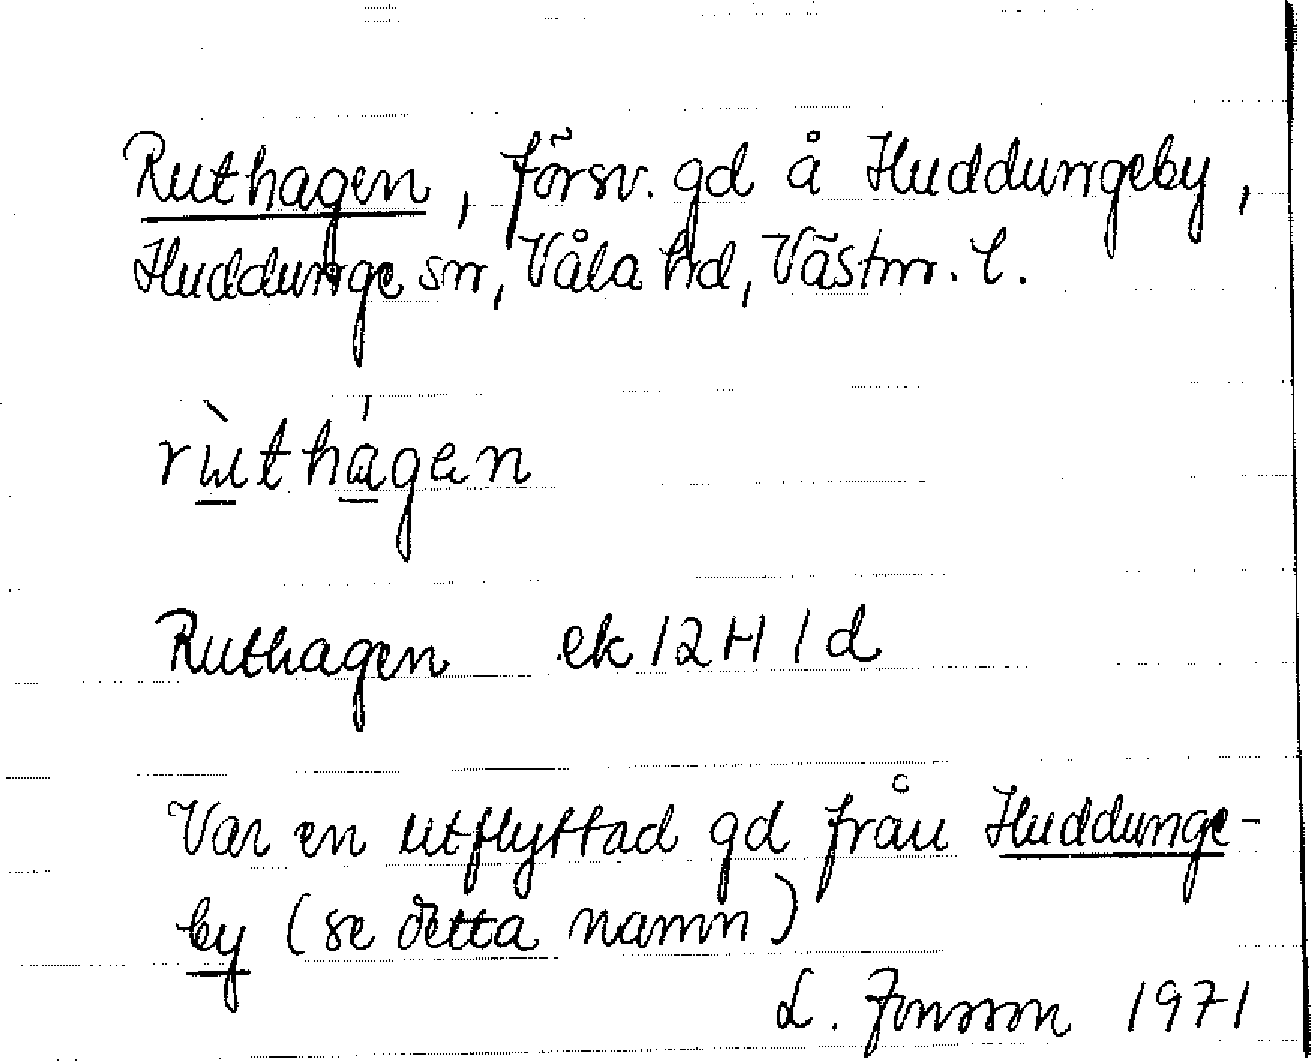 Ruthagen, försv. gd å Huddungeby,
Huddunge sn, Våla hd, Västm. l.
rùthágen
Ruthagen ek 12H 1d
Var en utflyttad gd från Huddunge-
by (se detta namn)
L. Jonsson 1971